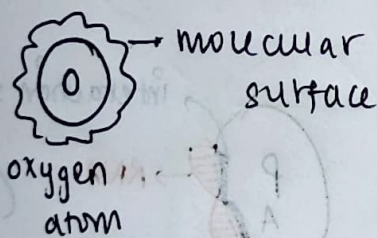 → molecular
surface
O
oxygen
atom